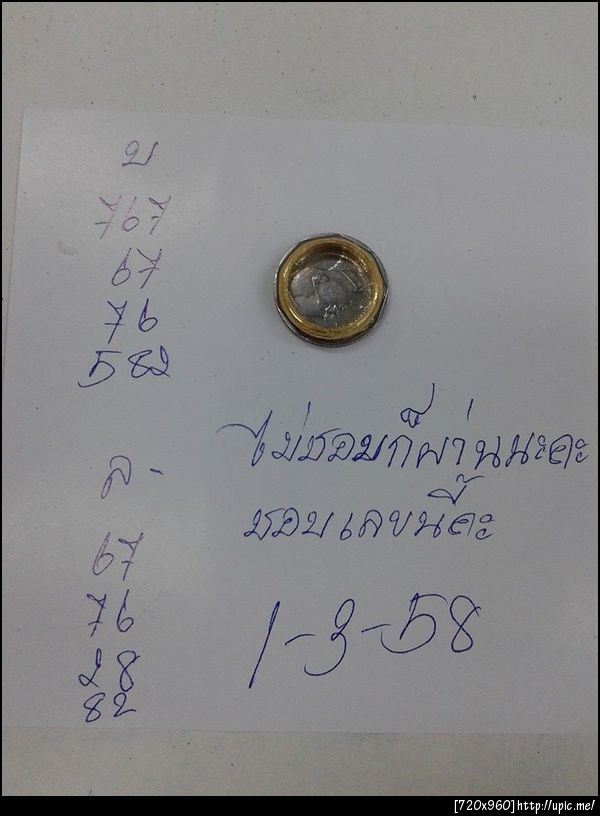 บ
767
67
76
582
ล -
67
76
28
82
ไม่ชอบก็ผ่านนะคะ
ชอบเลขนี้คะ
1-3-58
[720x960]http://upic.me/